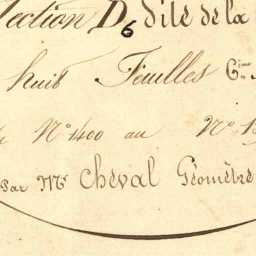 Section D, dite de la
huit Feuilles 6ème
N° 400 au N°
Par Mr Cheval Géomètre